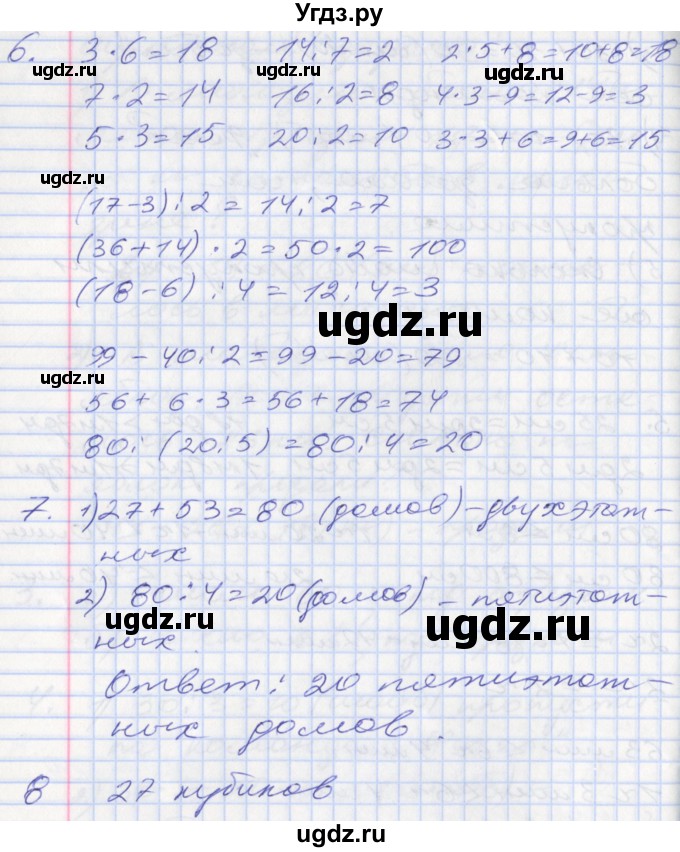 Угдз.ру
6. 3·6=18 14:7=2 2·5+8=10+8=18
ugdz.ru ugdz.ru ugdz.ru
7·2=14 16:2=8 4·3-9=12-9=3
5·3=15 20:2=10 3·3+6=9+6=15
ugdz.ru
(17-3):2=14:2=7
(36+14)·2=50·2=100
(18-6):4=12:4=3
ugdz.ru
99-40:2=99-20=79
ugdz.ru
56+6·3=56+18=74
80:(20:5)=80:4=20
ugdz.ru
7. 1) 27+53=80 (домов) - двухэтаж-
ных
2) 80:4=20 (домов) - пятиэтаж-
ugdz.ru
ных.
ugdz.ru
Ответ: 20 пятиэтаж-
ных домов.
ugdz.ru
8 27 кубиков
ugdz.ru